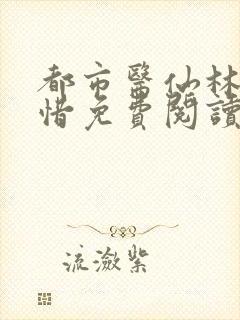 都市醫仙林
惜免費閱讀
流瀲紫